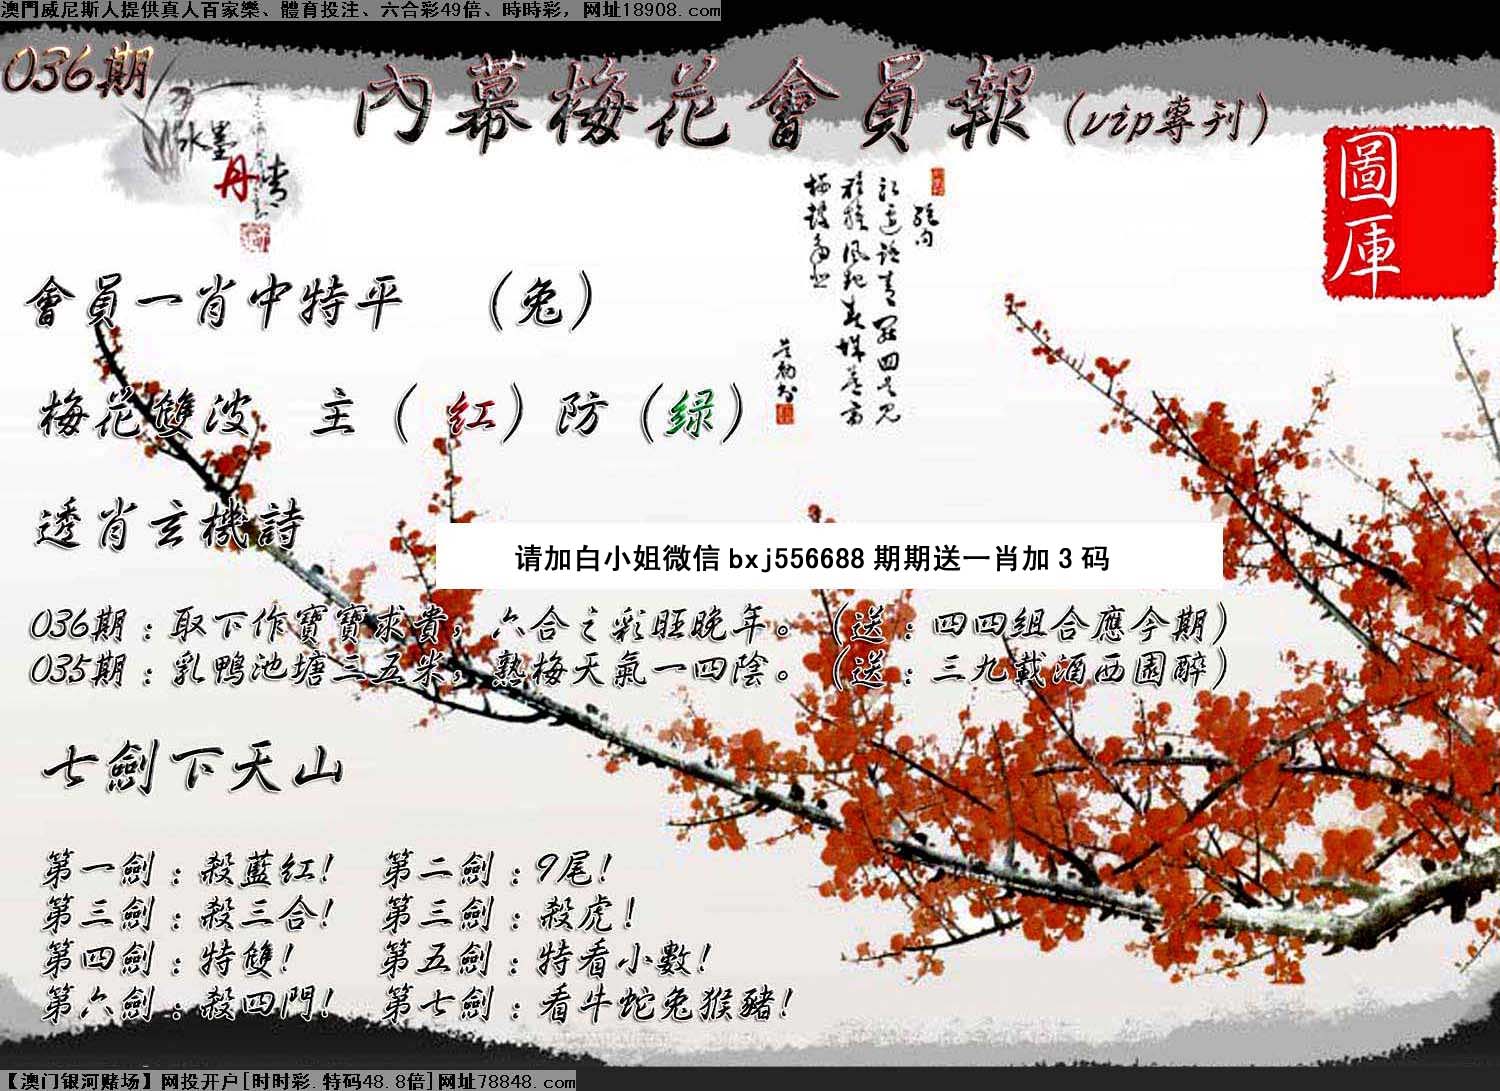 澳門威尼斯人提供真人百家樂、體育投注、六合彩49倍、時時彩，网址18908.com
036期
內幕梅花會員報（vip專刊）
水墨
丹青
圖庫
會員一肖中特平 （兔）
梅花雙波 主（紅）防（绿）
透肖玄機詩
请加白小姐微信 bxj556688 期期送一肖加 3 码
036期：取下作寶寶求貴，六合之彩旺晚年。（送：四四组合應今期）
035期：乳鴨池塘三五米，熟梅天氣一四陰。（送：三九載酒西園醉）
七劍下天山
第一劍：殺藍红! 第二劍：9尾!
第三劍：殺三合! 第三劍：殺虎!
第四劍：特雙! 第五劍：特看小數!
第六劍：殺四門! 第七劍：看牛蛇兔猴豬!
【澳门银河赌场】网投开户[时时彩.特码48.8倍]网址78848.com